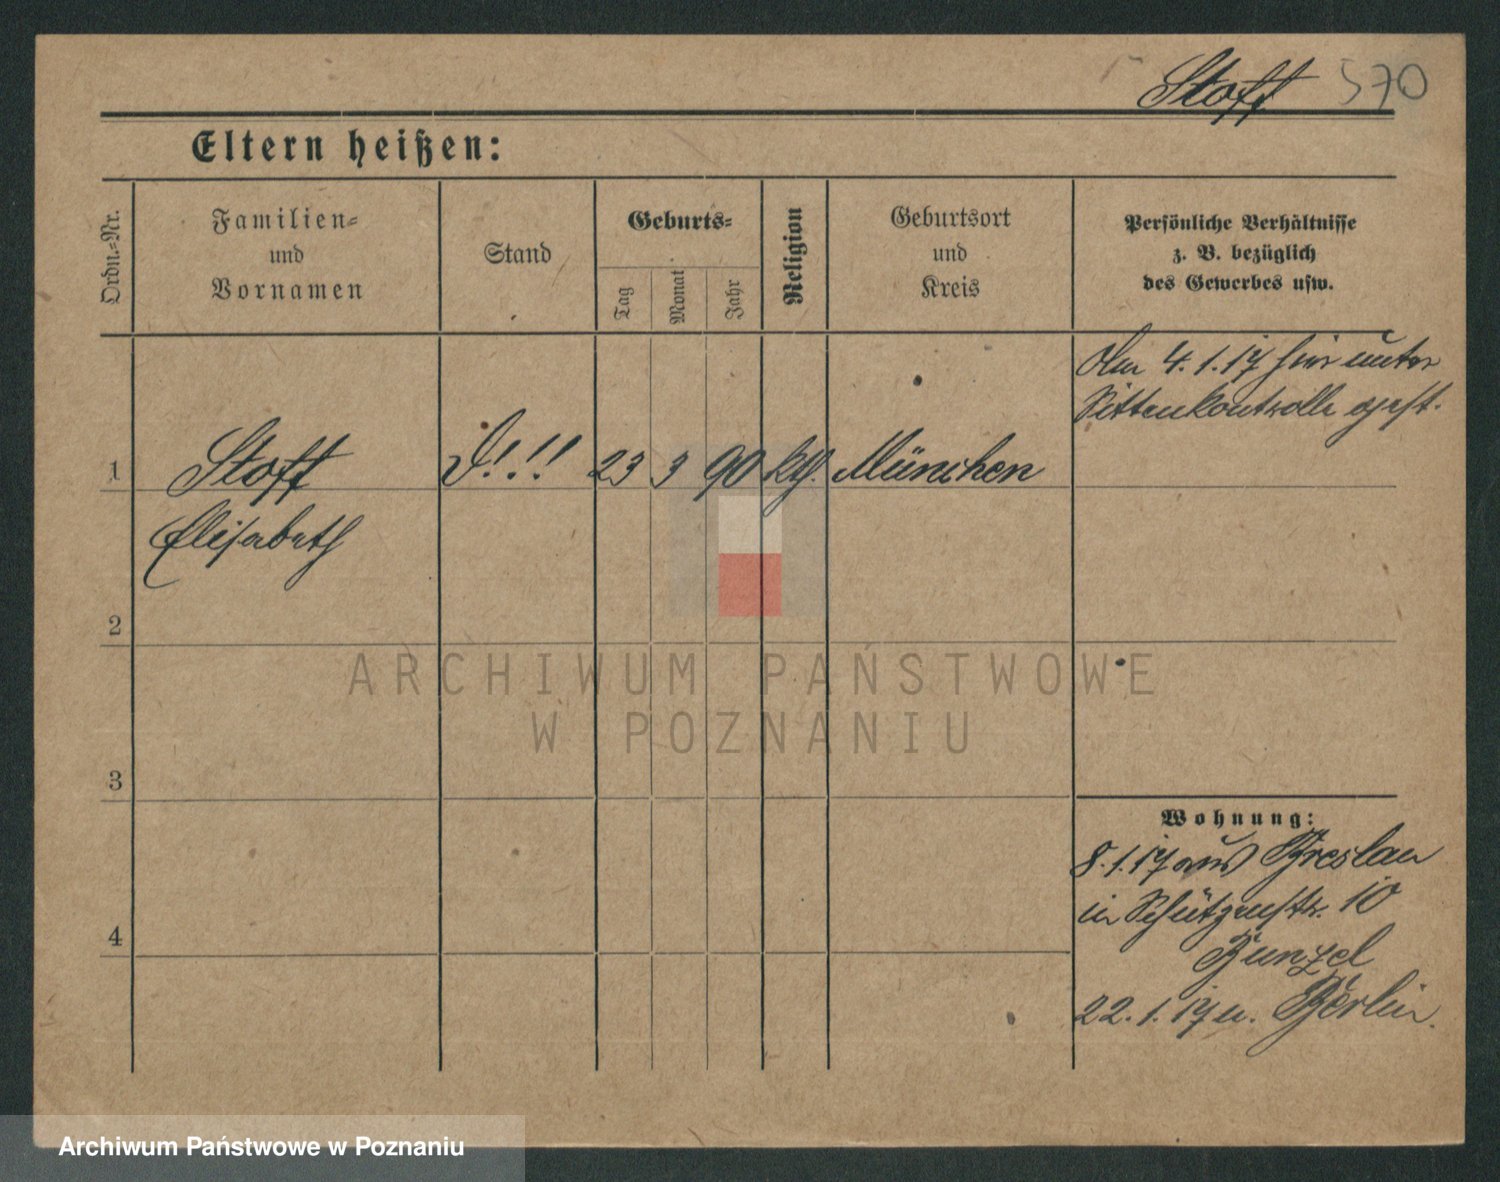 Stoff 570
Eltern heißen:
Ordn.=Nr.
Familien=
und
Vornamen
Stand
Geburts=
Tag
Monat
Jahr
Religion
Geburtsort
und
Kreis
Persönliche Verhältnisse
z. B. bezüglich
des Gewerbes usw.
Am 4.1.17 hier unter
Sittenkontrolle gest.
1 Stoff D!!! 23 3 90 kth. München
Elisabeth
2
3
4
Wohnung:
8.1.17 aus Breslau
in Schützenstr. 10
Bunzel
22.1.17 n. Berlin.
ARCHIWUM PAŃSTWOWE
W POZNANIU
Archiwum Państwowe w Poznaniu